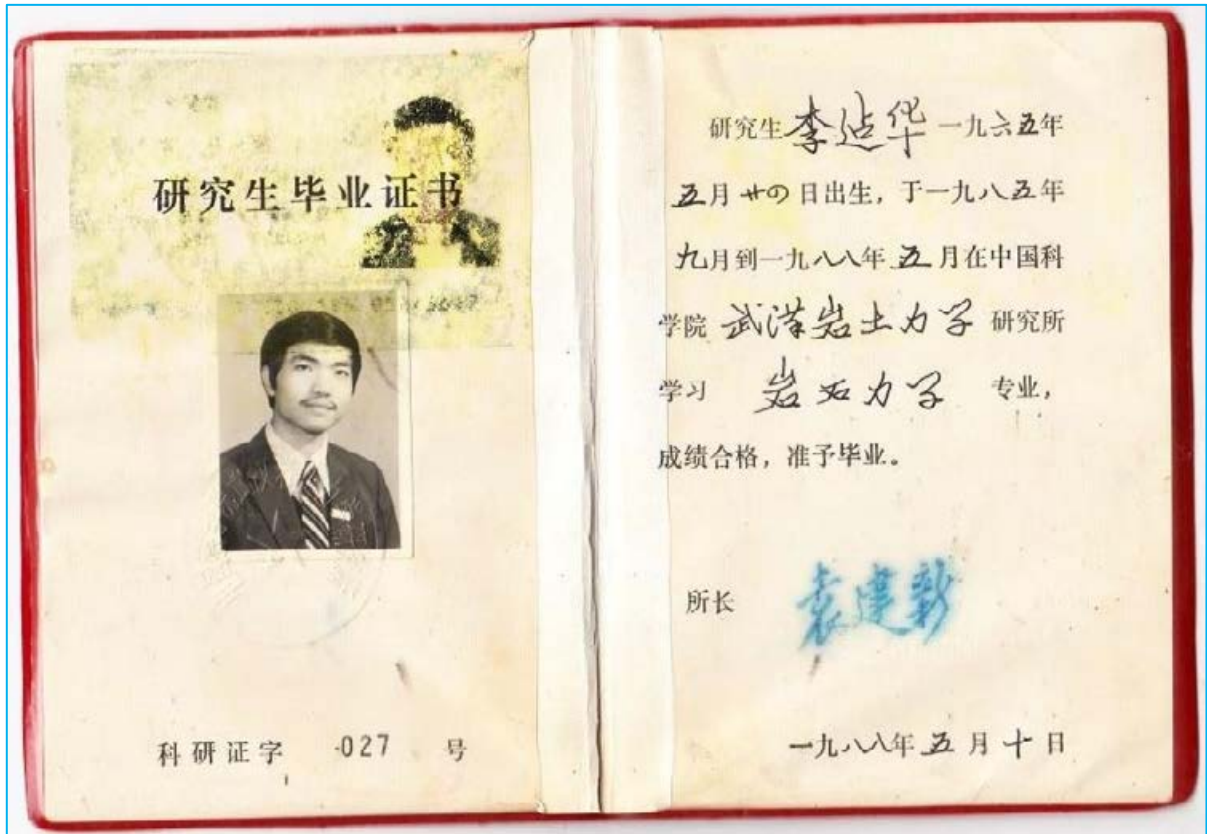 研究生毕业证书
科研证字 027 号
研究生 李造华 一九六五年
五月廿四日出生，于一九八五年
九月到一九八八年五月在中国科
学院 武汉岩土力学 研究所
学习 岩石力学 专业，
成绩合格，准予毕业。
所长 袁建新
一九八八年五月十日